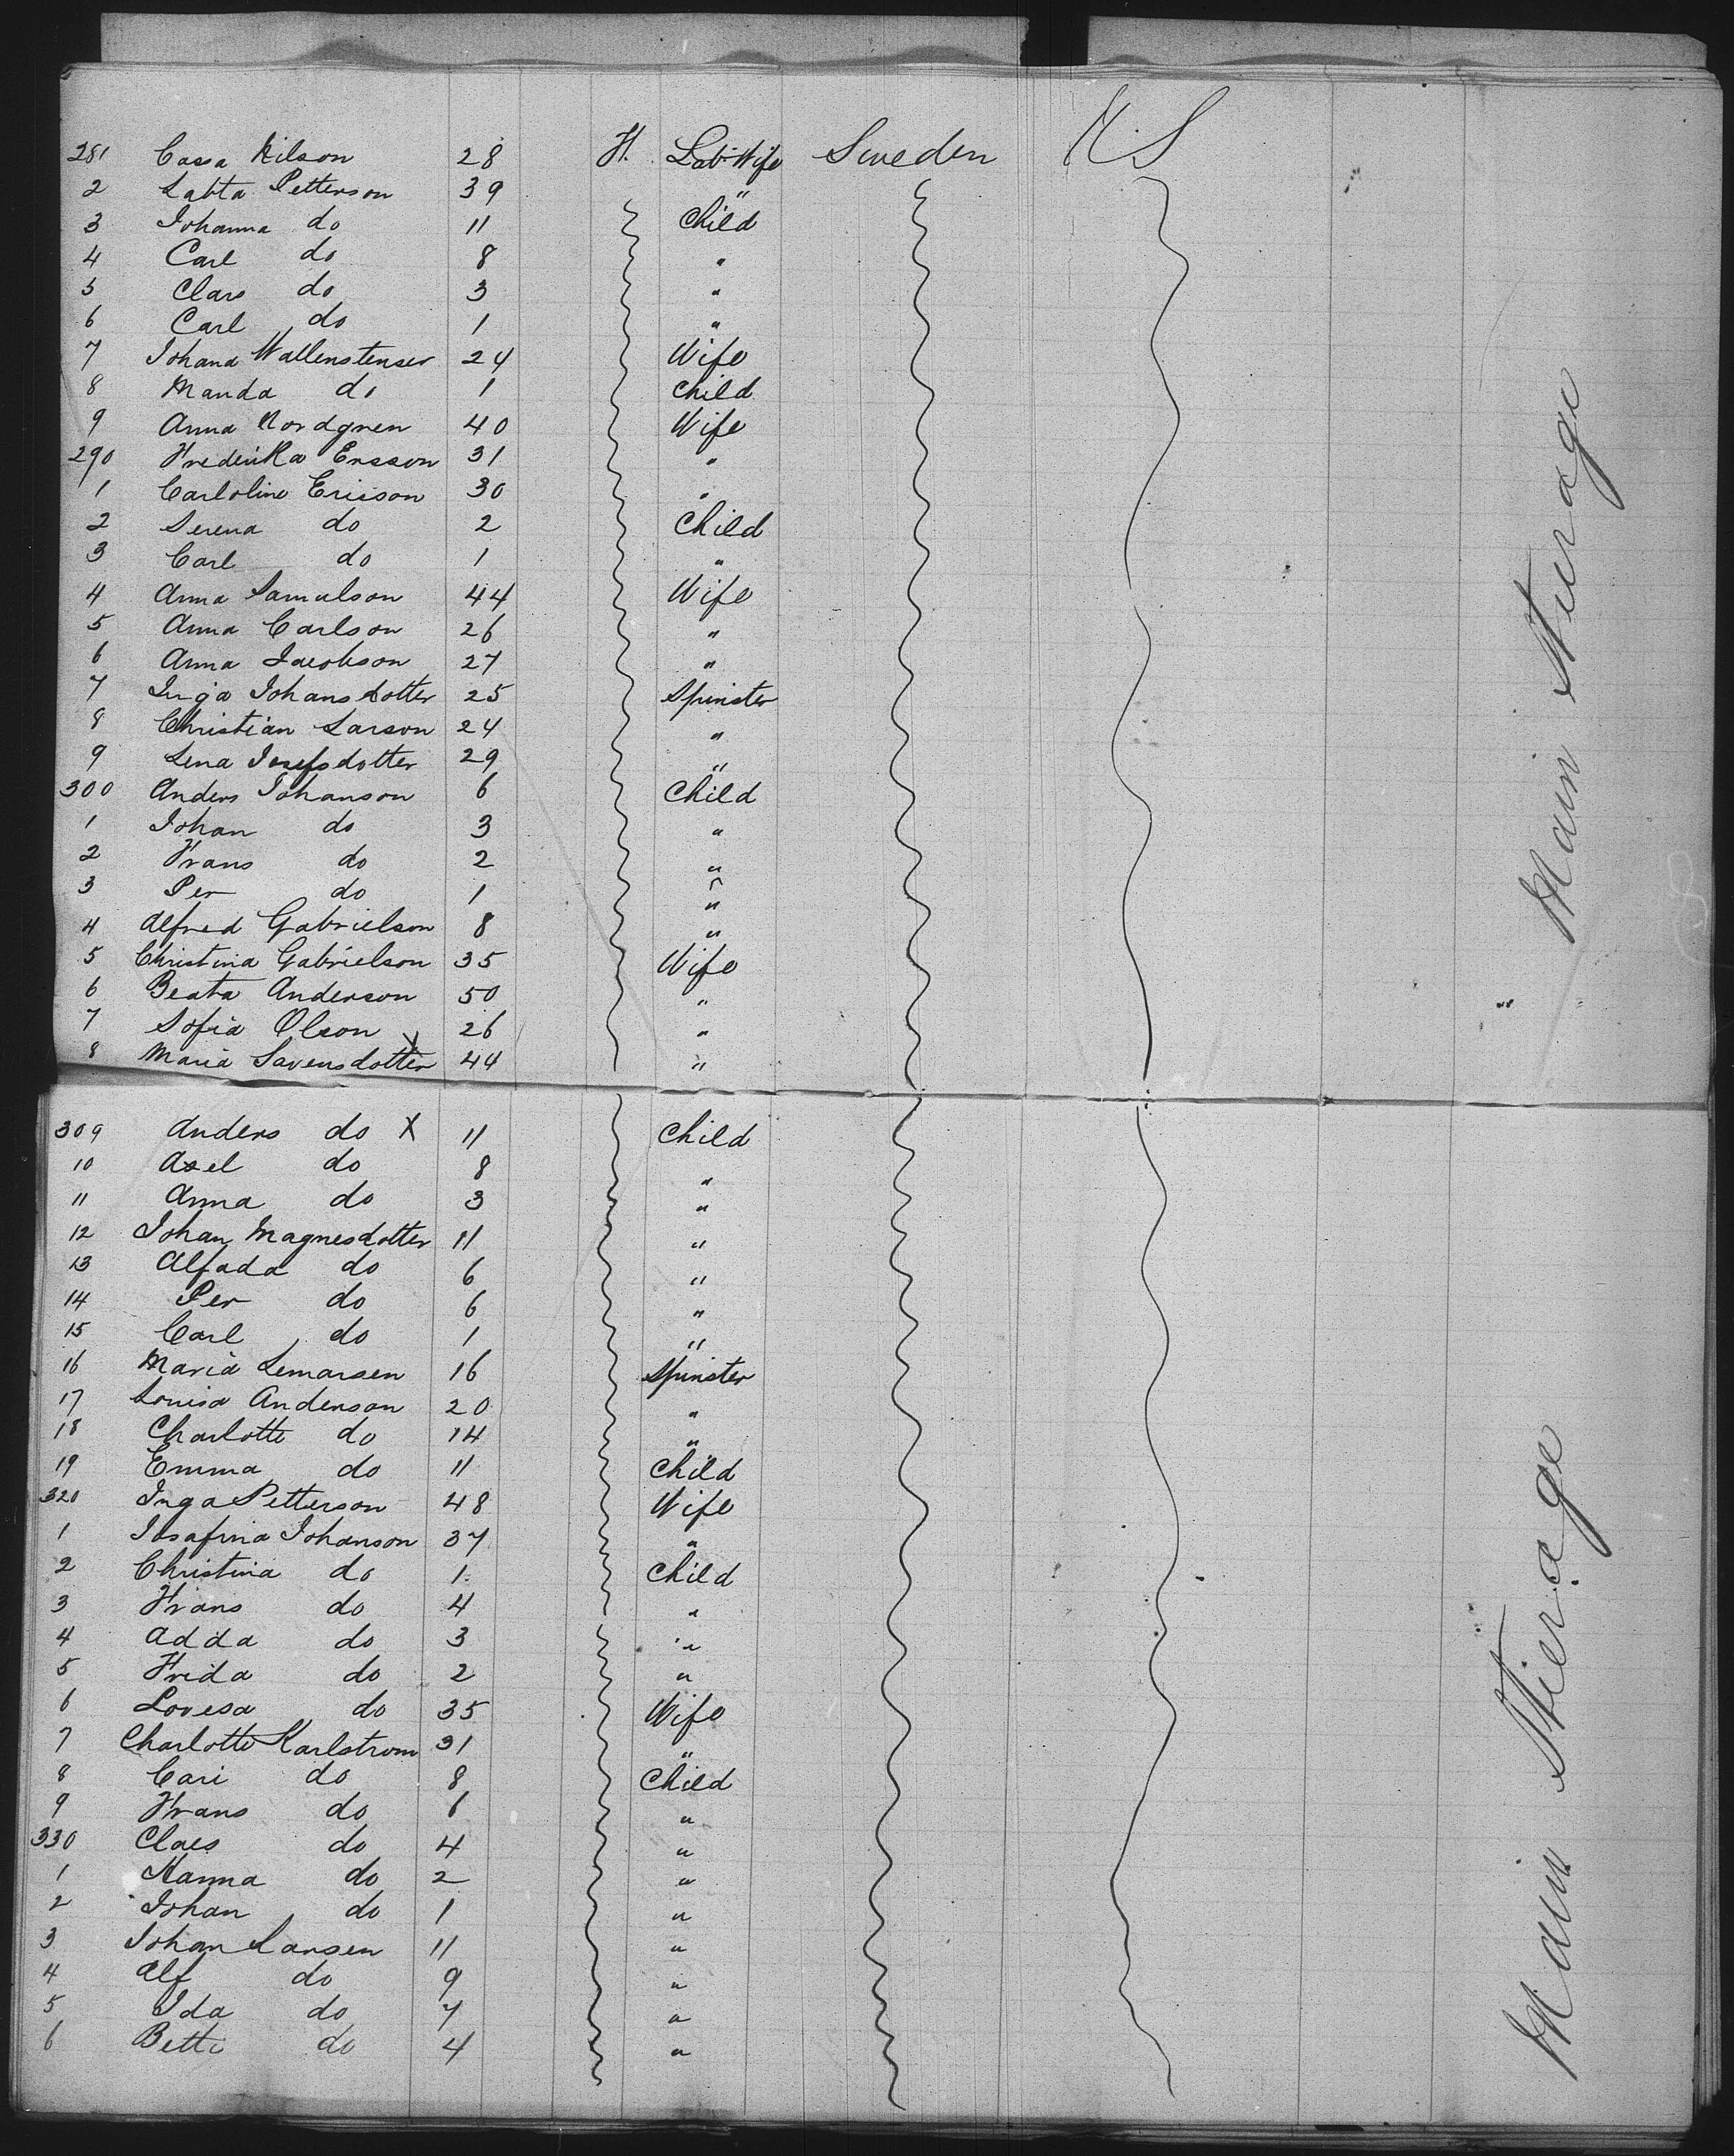 281 Cassa Nilson 28 H. Lab Wife Sweden U.S
2 Labta Petterson 39 "
3 Johanna do 11 Child
4 Carl do 8 "
5 Clars do 3 "
6 Carl do 1 "
7 Johana Wallenstenser 24 Wife
8 Manda do 1 Child
9 Anna Nordgren 40 Wife
290 Frederika Ersson 31 "
1 Carloline Ericson 30 "
2 Serena do 2 Child
3 Carl do 1 "
4 Anna Samulson 44 Wife
5 Anna Carlson 26 "
6 Anna Jacobson 27 "
7 Inga Johansdotter 25 Spinster
8 Christian Larson 24 "
9 Lena Josefsdotter 29 "
300 Anders Johanson 6 Child
1 Johan do 3 "
2 Frans do 2 "
3 Per do 1 "
4 Alfred Gabrielson 8 "
5 Christina Gabrielson 35 Wife
6 Beata Anderson 50 "
7 Sofia Olson 26 "
8 Maria Savensdotter X 44 "
Main Steerage
309 Anders do X 11 Child
10 Axel do 8 "
11 Anna do 3 "
12 Johan Magnesdotter 11 "
13 Alfada do 6 "
14 Per do 6 "
15 Carl do 1 "
16 Maria Lemarsen 16 Spinster
17 Louisa Anderson 20 "
18 Charlotte do 14 "
19 Emma do 11 Child
320 Inga Petterson 48 Wife
1 Josafina Johanson 37 "
2 Christina do 1 Child
3 Frans do 4 "
4 Adda do 3 "
5 Frida do 2 "
6 Lovesa do 35 Wife
7 Charlotte Karlstrom 31 "
8 Cari do 8 Child
9 Frans do 6 "
330 Claes do 4 "
1 Hanna do 2 "
2 Johan do 1 "
3 Johan Larsen 11 "
4 Alf do 9 "
5 Ida do 7 "
6 Betti do 4 "
Main Steerage